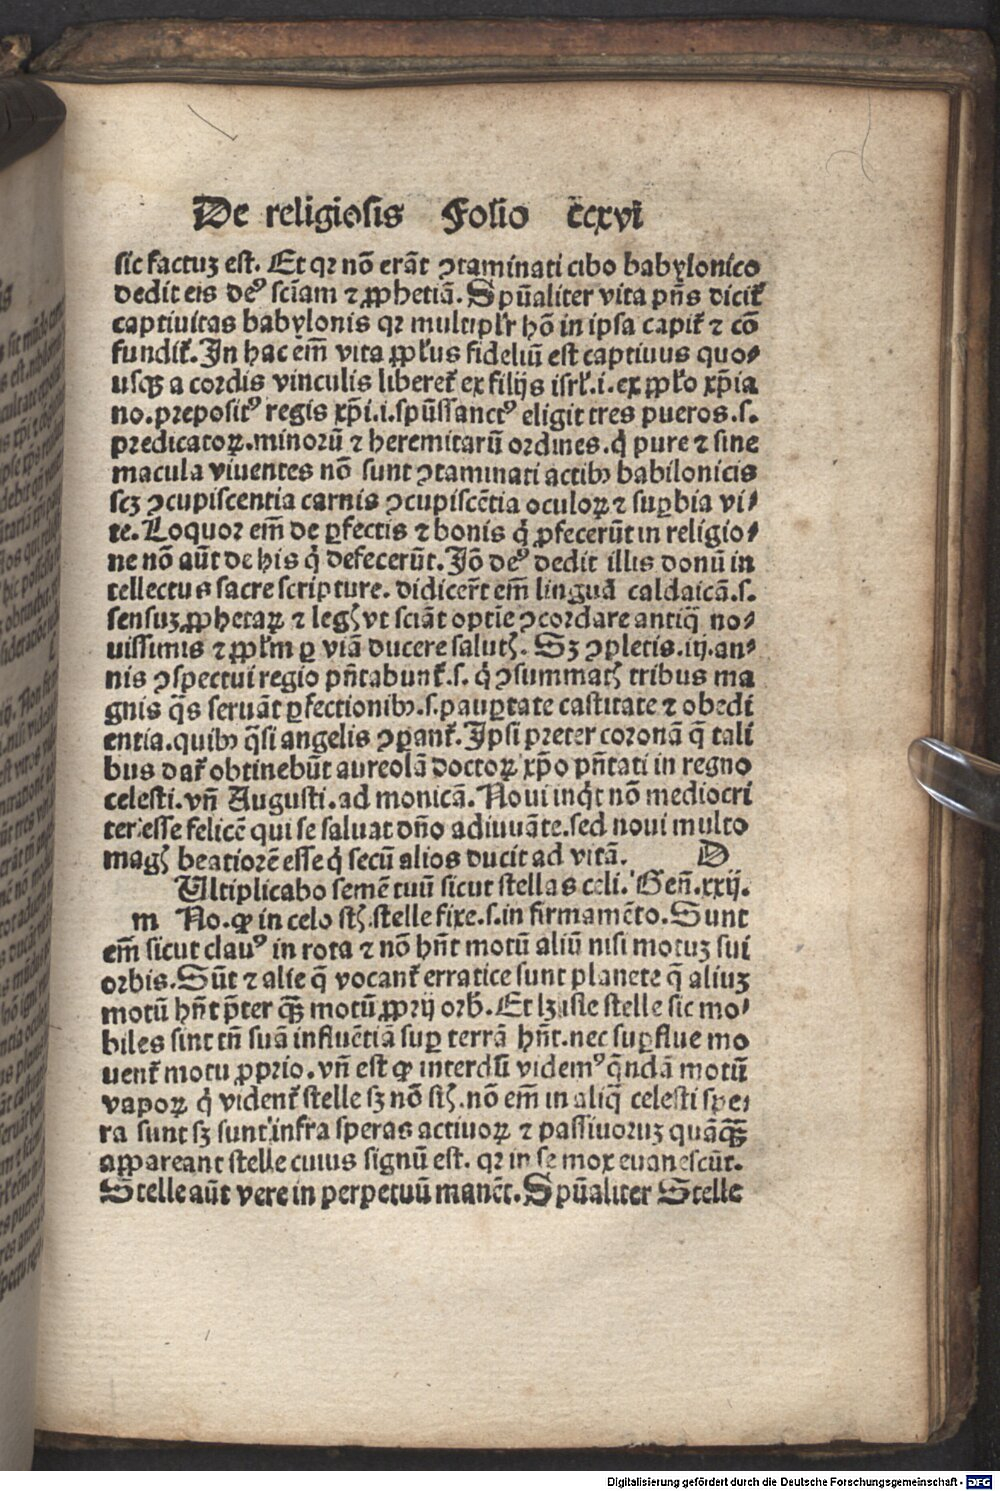 De religiosis Folio ccxvi
sic factuꝫ est. Et qꝛ nō erāt ꝯtaminati cibo babylonico
dedit eis deꝰ sciam̄ ⁊ ꝓphetiā. Spūaliter vita pn̄s dicit᷑
captiuitas babylonis qꝛ multipl'r hō in ipsa capit᷑ ⁊ cō
fundit᷑. In hac em̄ vita ꝓpl'us fideliū est captiuus quo⸗
usqꝫ a cordis vinculis liberet᷑ ex filijs isrl'.i. ex ꝓpl'o xp̄ia
no. prepositꝰ regis xp̄i.i.spūssanctꝰ eligit tres pueros.s.
predicatoꝝ. minorū ⁊ heremitarū ordines. q̇ pure ⁊ sine
macula viuentes nō sunt ꝯtaminati actibꝫ babilonicis
scꝫ ꝯcupiscentia carnis ꝯcupiscētia oculoꝝ ⁊ suꝑbia vi⸗
te. Loquor em̄ de ꝑfectis ⁊ bonis q̇ ꝓfecerūt in religio⸗
ne nō aūt de his q̇ defecerūt. Iō deꝰ dedit illis donū in
tellectus sacre scripture. didicer̄t em̄ linguā caldaicā.s.
sensuꝫ ꝓphetaꝝ ⁊ legꝭ vt sciāt optīe ꝯcordare antiq̄ no⸗
uissimis ⁊ ꝓpl'm ꝑ viā ducere salutꝭ. Sꝫ ꝯpletis.iij.an⸗
nis ꝯspectui regio pn̄tabunt᷑.s. q̇ ꝯsummatꝭ tribus ma
gnis q̄s seruāt ꝑfectionibꝫ.s.pauꝑtate castitate ⁊ obedi
entia. quibꝫ q̄si angelis ꝯꝑant᷑. Ipsi preter coronā q̄ tali
bus dat᷑ obtinebūt aureolā doctoꝝ xp̄o pn̄tati in regno
celesti. vn̄ Augusti. ad monicā. Noui inq̇t nō mediocri
ter esse felicē qui se saluat dn̄o adiuuāte. sed noui multo
magꝭ beatiorē esse q̇ secū alios ducit ad vitā. D
Ultiplicabo semē tuū sicut stellas celi. Gen̄.xxij.
m No. ꝙ in celo st̄ꝭ stelle fixe.s. in firmamēto. Sunt
em̄ sicut clauꝰ in rota ⁊ nō hn̄t motū aliū nisi motuꝫ sui
orbis. Sūt ⁊ alie q̄ vocant᷑ erratice sunt planete q̄ aliuꝫ
motū hn̄t p̄ter qꝫ motū ꝓprij orb̄. Et lꝫ iste stelle sic mo⸗
biles sint tn̄ suā influētiā suꝑ terrā hn̄t. nec suꝑflue mo
uent᷑ motu ꝓprio. vn̄ est ꝙ interdū videmꝰ q̄ndā motū
vapoꝝ q̇ vident᷑ stelle sꝫ nō st̄ꝭ. nō em̄ in aliq̄ celesti spe⸗
ra sunt sꝫ sunt infra speras actiuoꝝ ⁊ passiuoruꝫ quāqꝫ
appareant stelle cuius signū est. qꝛ in se mox euanescūt.
Stelle aūt vere in perpetuū manēt. Spūaliter Stelle
Digitalisierung gefördert durch die Deutsche Forschungsgemeinschaft - DFG